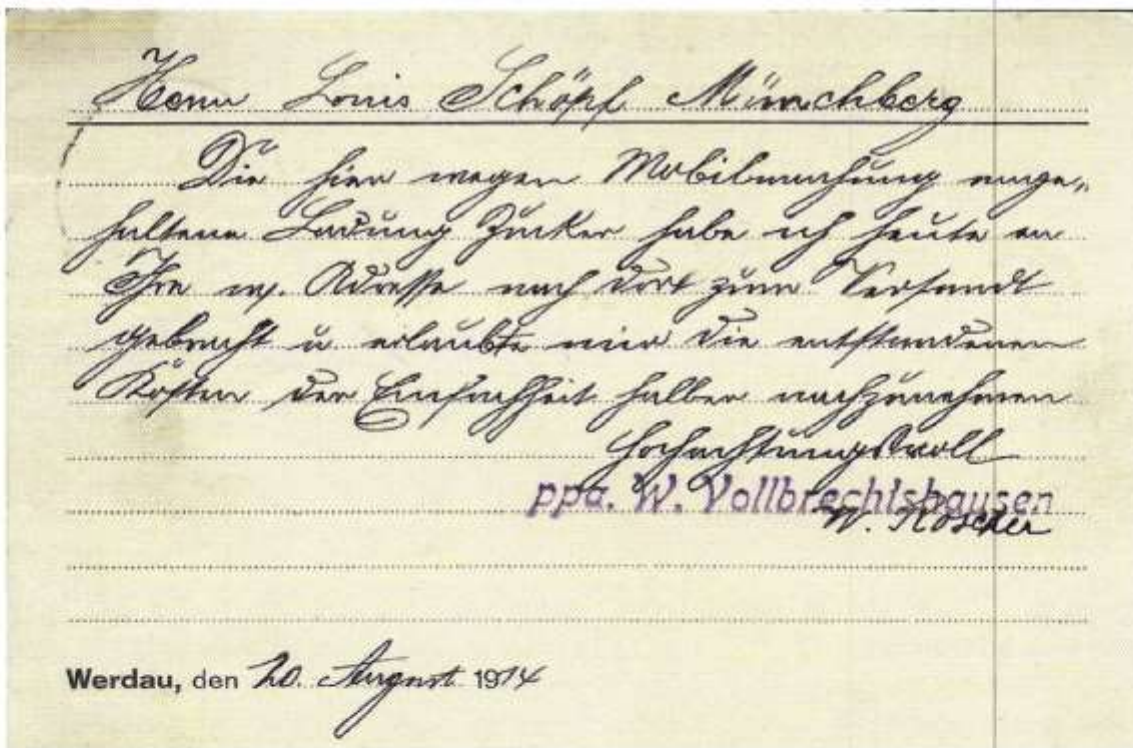 Herrn Louis Schöpf Münchberg
Die hier wegen Mobilmachung ange„
haltene Ladung Zucker habe ich heute an
Ihre w. Adresse nach dort zum Versandt
gebracht u erlaubte mir die entstandenen
Kosten der Einfachheit halber nachzunehmen
Hochachtungsvoll
ppa. W. Vollbrechtshausen
W. Roscher
Werdau, den 20. August 1914